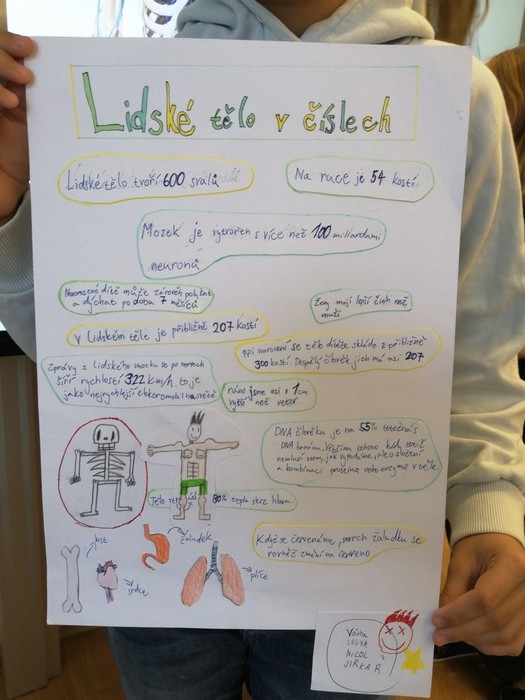 Lidské tělo v číslech
Lidské tělo tvoří 600 svalů
Na ruce je 54 kostí
Mozek je vytvořen s více než 100 miliardami
neuronů
Novorozené dítě může zároveň polykat
a dýchat po dobu 7 měsíců
Ženy mají lepší čich než
muži
V lidském těle je přibližně 207 kostí
Při narození se tělo dítěte skládá z přibližně
300 kostí. Dospělý člověk jich má asi 207
Zprávy z lidského mozku se po nervech
šíří rychlostí 322 km/h. to je
jako nejrychlejší elektromobil na světě
ráno jsme asi o 1cm
vyšší než večer.
DNA člověka je na 55% totožná s
DNA banánu. Většina tohoto kódu totiž
neurčuje jak vypadáme, ale složení
a kombinaci proteinů nebo enzymů v těle
Tělo ztrácí 80% tepla skrz hlavu
Když se červenáme, povrch žaludku se
rovněž změní na červeno
kost
srdce
žaludek
plíce
LUCKA
NICOL
JIŘKA R